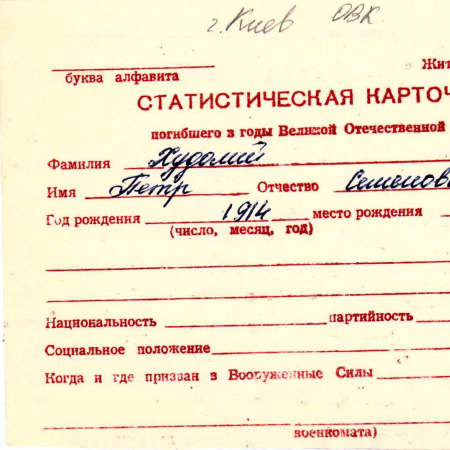 г. Киев ОВК
Жит
буква алфавита
СТАТИСТИЧЕСКАЯ КАРТОЧ
погибшего в годы Великой Отечественной
Фамилия Худолий
Имя Петр Отчество Семенов
Год рождения 1914 место рождения
(число, месяц, год)
Национальность партийность
Социальное положение
Когда и где призван в Вооруженные Силы
военкомата)